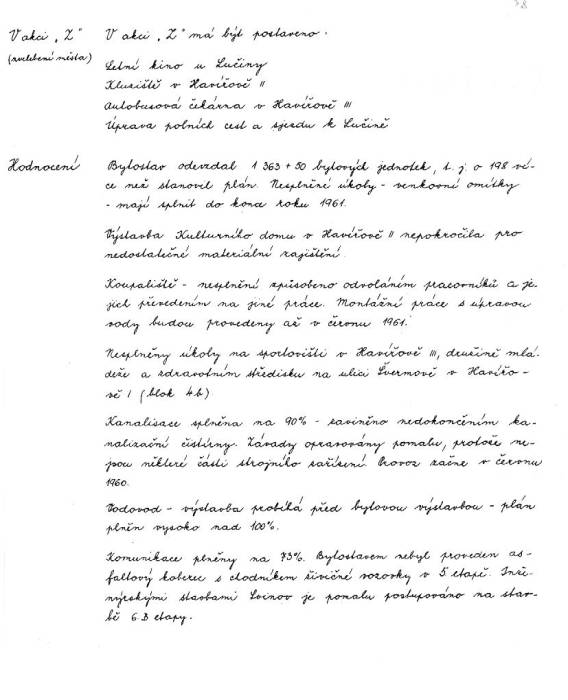 78
V akci „Z" V akci „Z" má být postaveno.
(zvelebení města) Letní kino u Lučiny
Kluziště v Havířově II
Autobusová čekárna v Havířově III
Úprava polních cest a sjezdu k Lučině
Hodnocení Bytostav odevzdal 1 363 + 50 bytových jednotek, t. j. o 198 ví-
ce než stanovil plán. Nesplněné úkoly - venkovní omítky
- mají splnit do konce roku 1961.
Výstavba Kulturního domu v Havířově II nepokročila pro
nedostatečné materiální zajištění.
Koupaliště - nesplnění způsobeno odvoláním pracovníků a je-
jich převedením na jiné práce. Montážní práce s úpravou
vody budou provedeny až v červnu 1961.
Nesplněny úkoly na sportovišti v Havířově III, družině mlá-
deže a zdravotním středisku na ulici Švermově v Havířo-
vě I (blok 4b).
Kanalisace splněna na 90% - zaviněno nedokončením ka-
nalizační čistírny. Závady opravovány pomalu, protože ne-
jsou některé části strojního zařízení. Provoz začne v červnu
1960.
Vodovod - výstavba probíhá před bytovou výstavbou - plán
plněn vysoko nad 100%.
Komunikace plněny na 73%. Bytostavem nebyl proveden as-
faltový koberec s chodníkem živičné vozovky v 5 etapě. Inže-
nýrskými stavbami Svinov je pomalu postupováno na stav-
bě 6.B etapy.